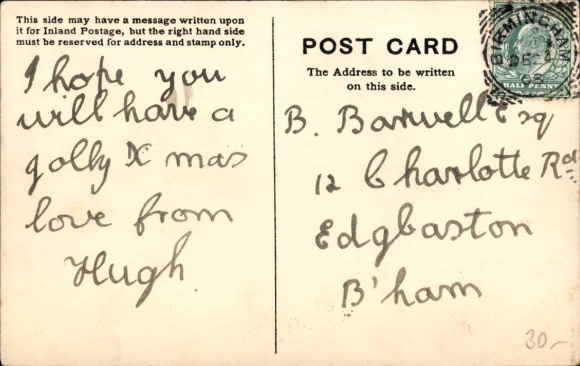 This side may have a message written upon
it for Inland Postage, but the right hand side
must be reserved for address and stamp only.
I hope you
will have a
jolly X mas
love from
Hugh
POST CARD
The Address to be written
on this side.
BIRMINGHAM
DE 24
HALF PENNY
B. Barwell Esq
12 Charlotte Rd
Edgbaston
B'ham
30.-